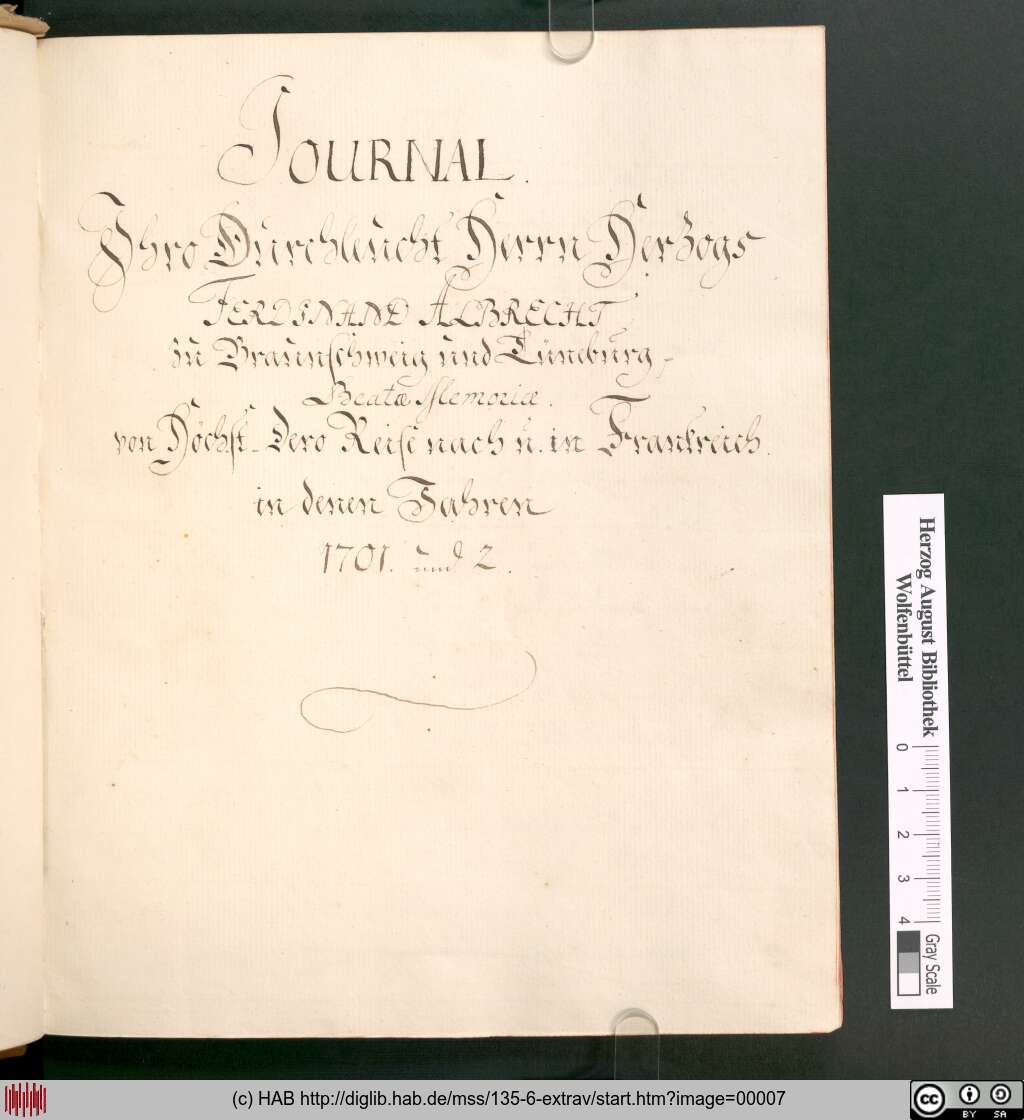 JOURNAL.
Ihro Durchleucht Herrn Hertzogs
FERDINAND ALBRECHT
zu Braunschweig und Lüneburg,
Beatæ Memoriæ.
von Höchst-Dero Reise nach u. in Frankreich.
in denen Jahren
1701. und 2.
Herzog August Bibliothek
Wolfenbüttel
0 1 2 3 4
Gray Scale
(c) HAB http://diglib.hab.de/mss/135-6-extrav/start.htm?image=00007
cc BY SA